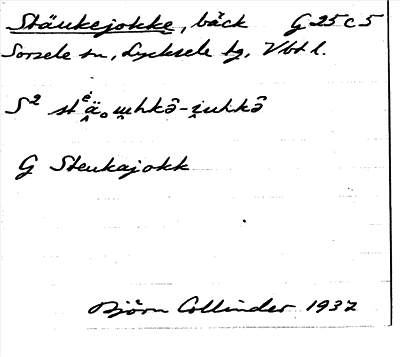 Stäukejokke, bäck G 25 c 5
Sorsele sn, Lycksele tg, Vbt l.
S²
G Steukajokk
Björn Collinder 1937